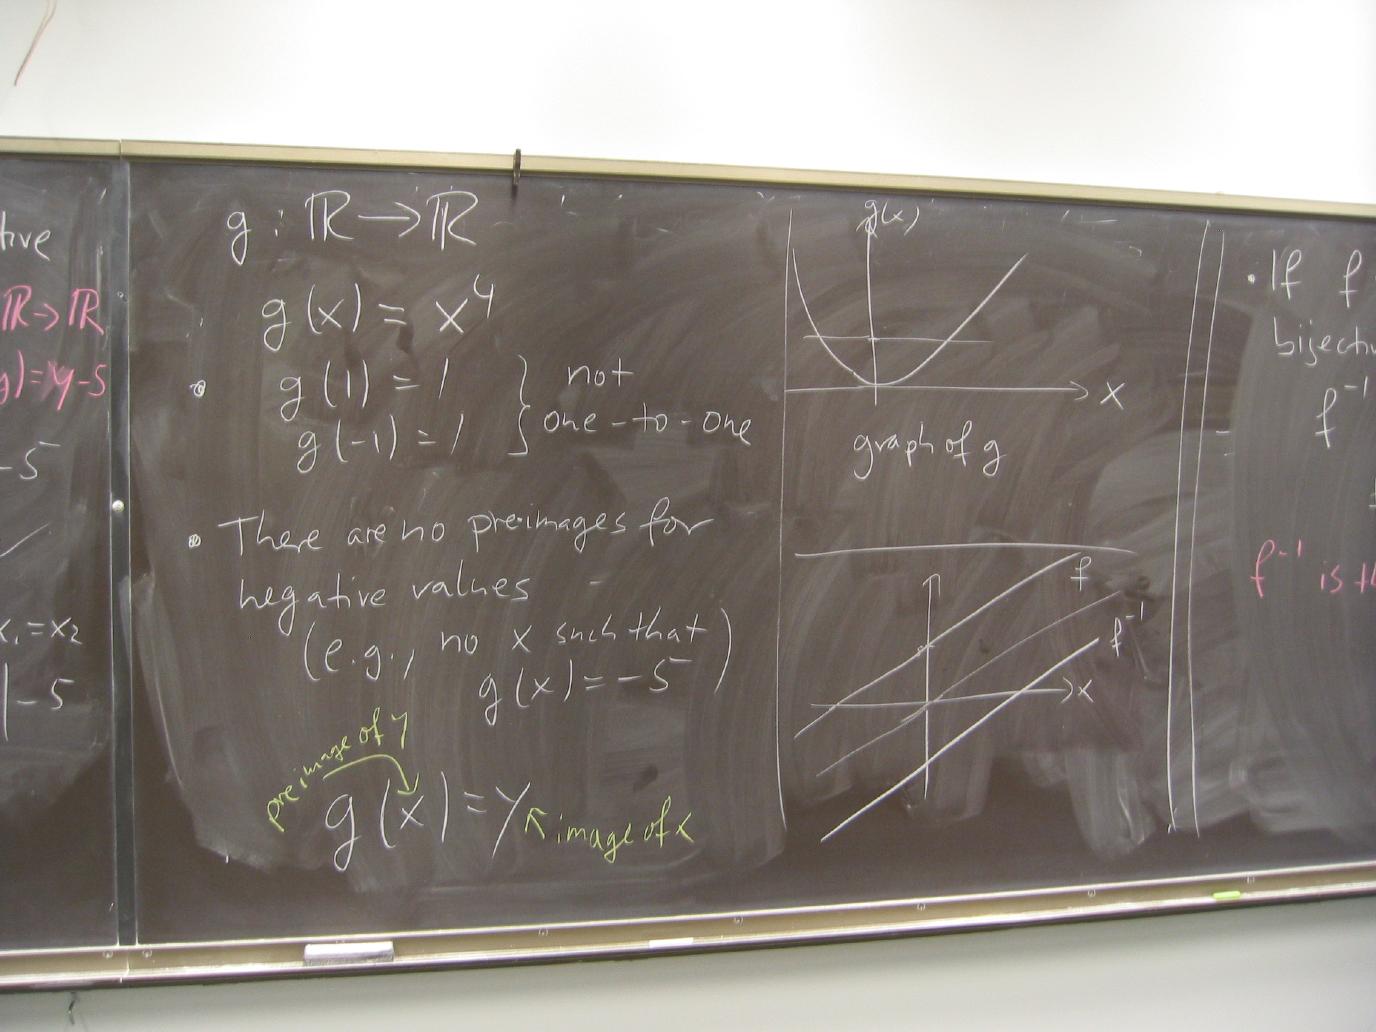 tive
ℝ→ℝ
y)=y-5
-5
x₁=x₂
-5
g: ℝ→ℝ
g(x) = x⁴
g(1) = 1
g(-1) = 1
not
one-to-one
• There are no preimages for
negative values
(e.g., no x such that
g(x) = -5)
preimage of y
g(x) = y
image of x
g(x)
x
graph of g
f
f⁻¹
x
• If f
bijectiv
f⁻¹
f⁻¹ is th